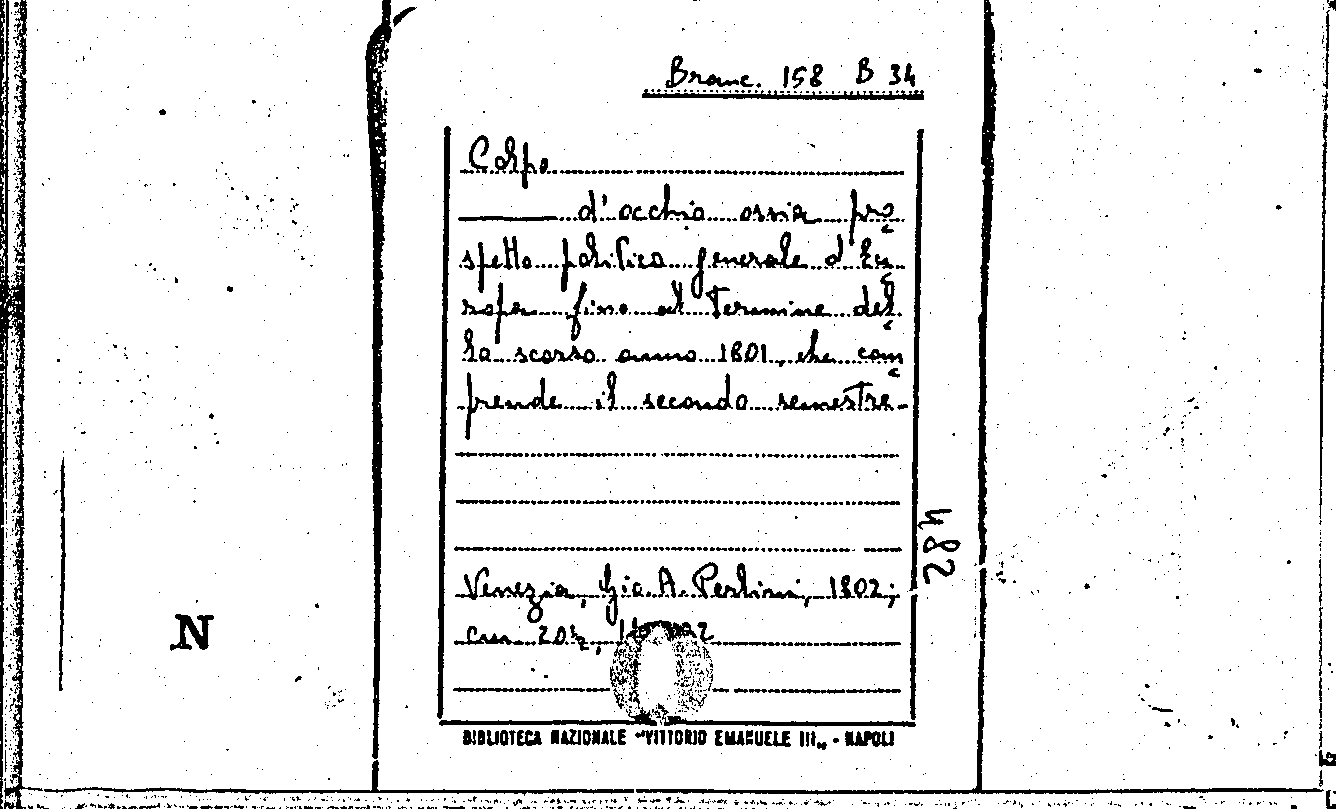 Branc. 158 B 34
Colpo
d'occhio ossia pro
spetto politico generale d'Eu
ropa fino al termine del
lo scorso anno 1801, che com
prende il secondo semestre.
482
Venezia, Gio. A. Perlini, 1802;
cm 20½,
N
BIBLIOTECA NAZIONALE "VITTORIO EMANUELE III„ - NAPOLI